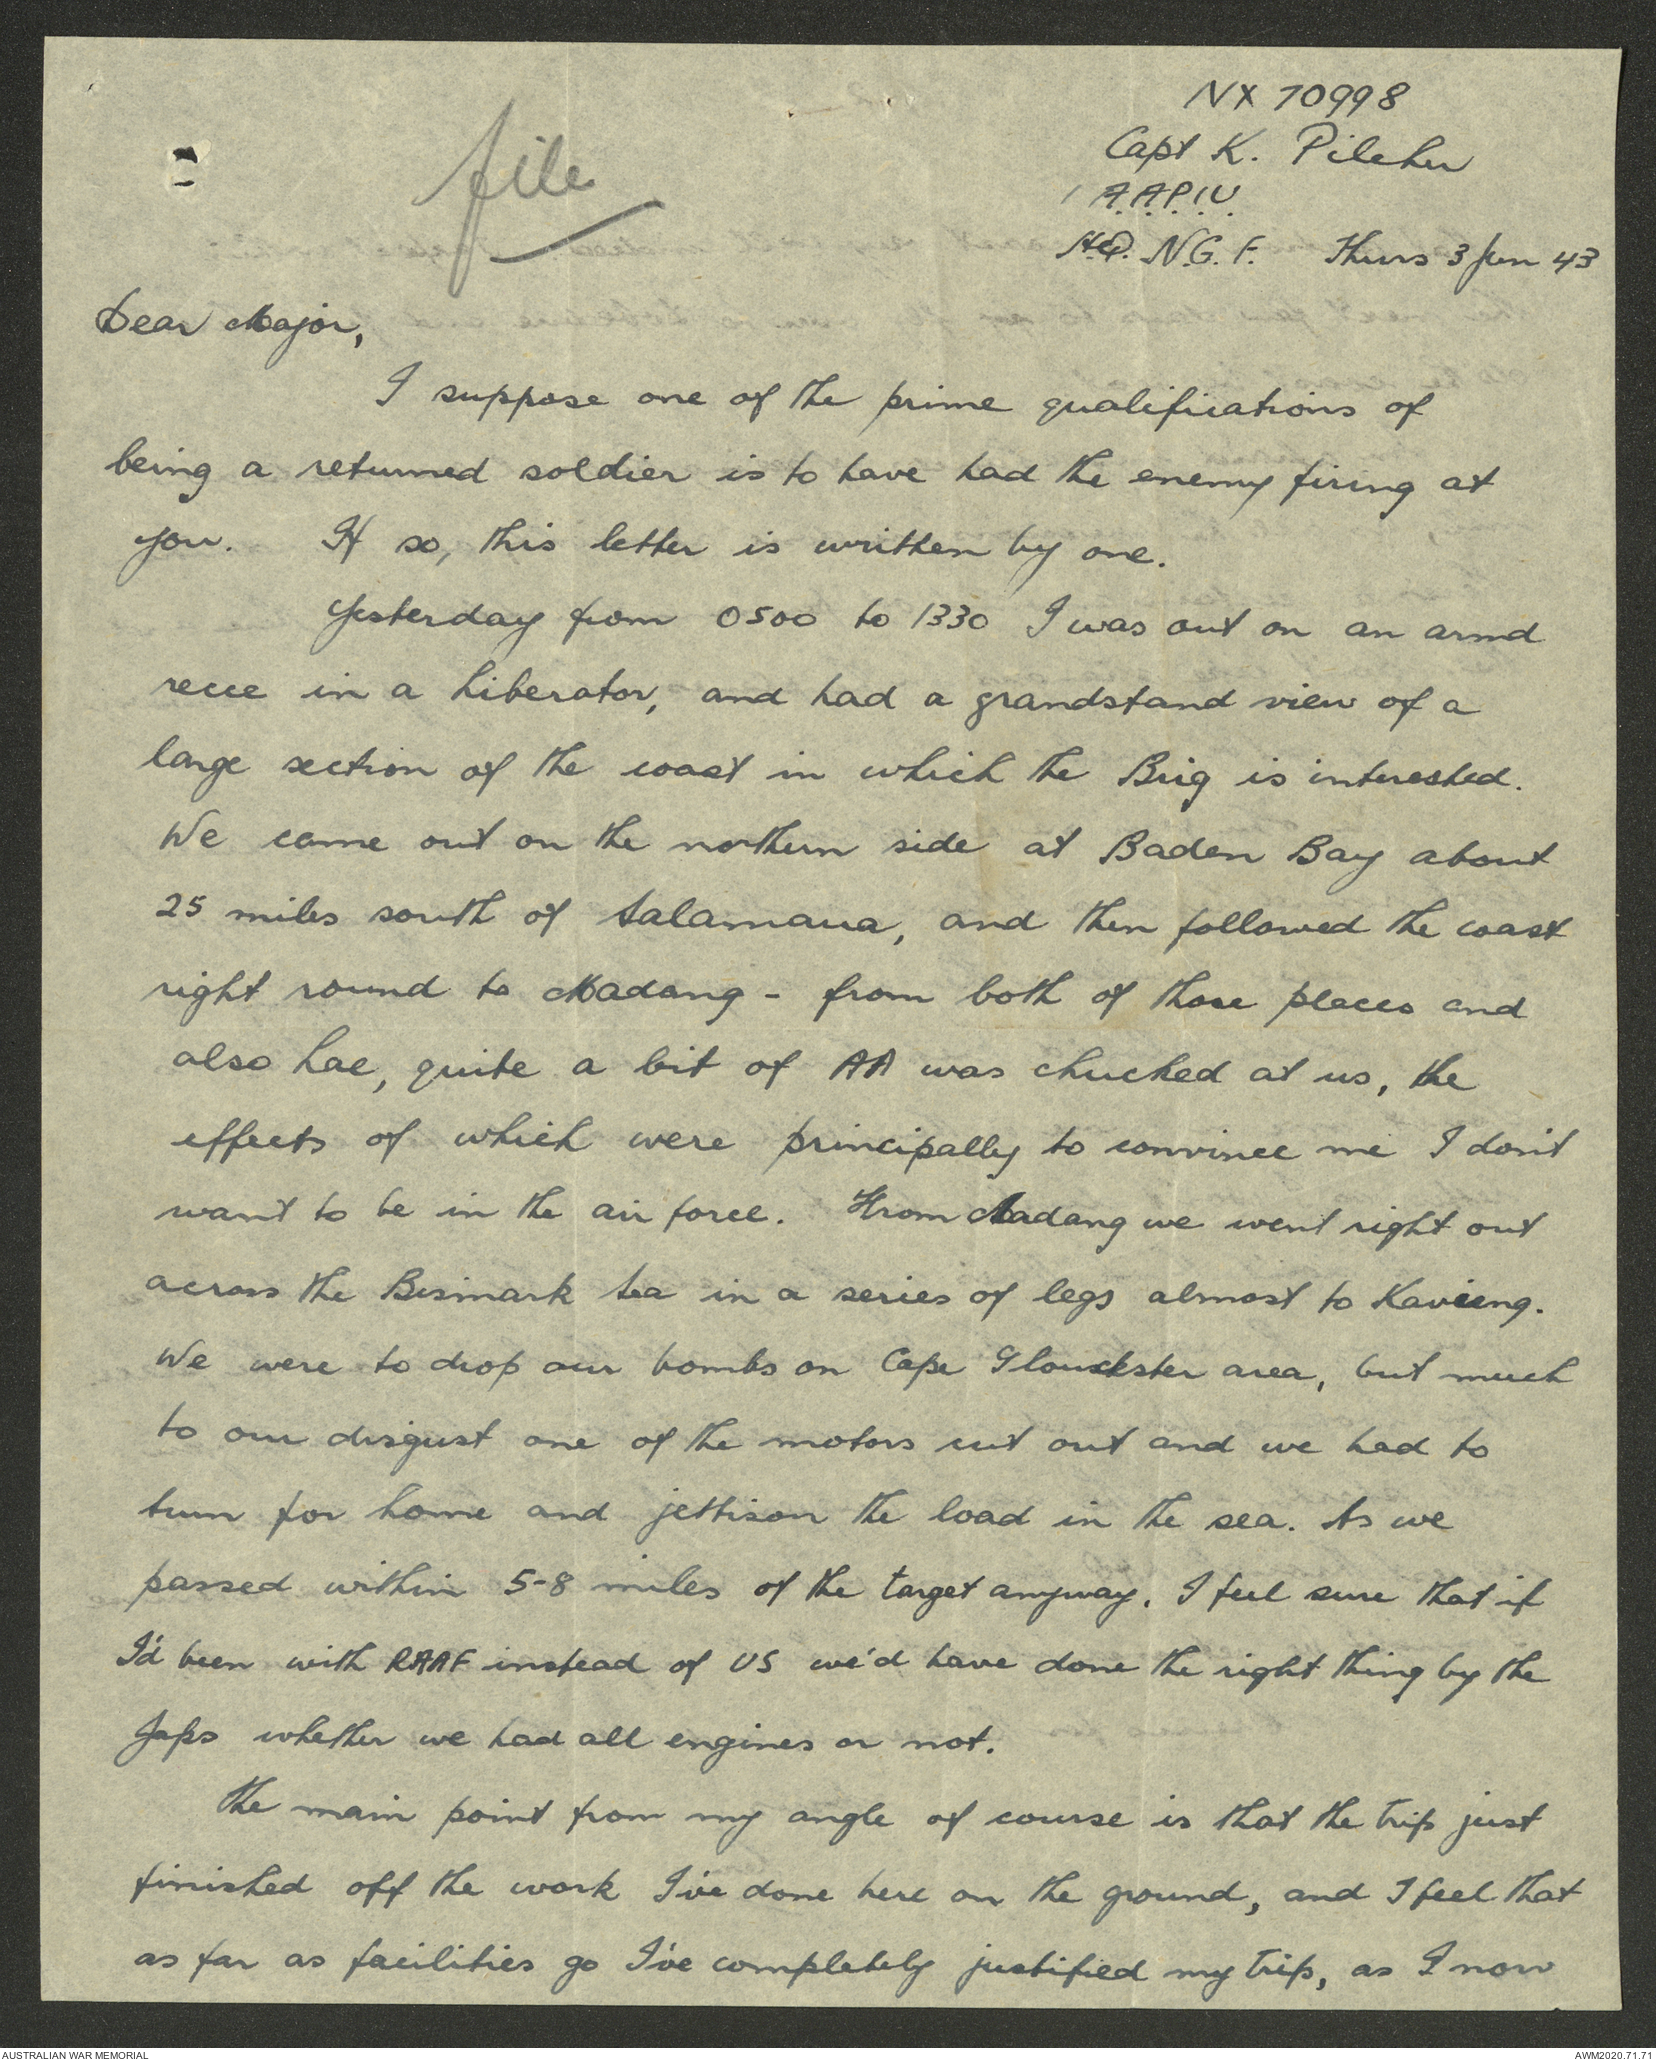 NX 70998
Capt K. Pilcher
1 A.A.P.I.U.
H.Q. N.G.F. Thurs 3 Jun 43
file
Dear Major,
I suppose one of the prime qualifications of
being a returned soldier is to have had the enemy firing at
you. If so, this letter is written by one.
Yesterday from 0500 to 1330 I was out on an armd
recce in a Liberator, and had a grandstand view of a
large section of the coast in which the Brig is interested.
We came out on the northern side at Baden Bay about
25 miles south of Salamaua, and then followed the coast
right round to Madang - from both of those places and
also Lae, quite a bit of AA was chucked at us, the
effects of which were principally to convince me I don't
want to be in the air force. From Madang we went right out
across the Bismark Sea in a series of legs almost to Kavieng.
We were to drop our bombs on Cape Glouckster area, but much
to our disgust one of the motors cut out and we had to
turn for home and jettison the load in the sea. As we
passed within 5-8 miles of the target anyway, I feel sure that if
I'd been with RAAF instead of US we'd have done the right thing by the
Japs whether we had all engines or not.
The main point from my angle of course is that the trip just
finished off the work I've done here on the ground, and I feel that
as far as facilities go I've completely justified my trip, as I now
AUSTRALIAN WAR MEMORIAL
AWM2020.71.71